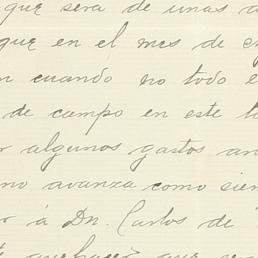 que sera de unas
que en el mes de
cuando no todo
de campo en este
algunos gastos an
no avanza como sien
á Dn. Carlos de
que